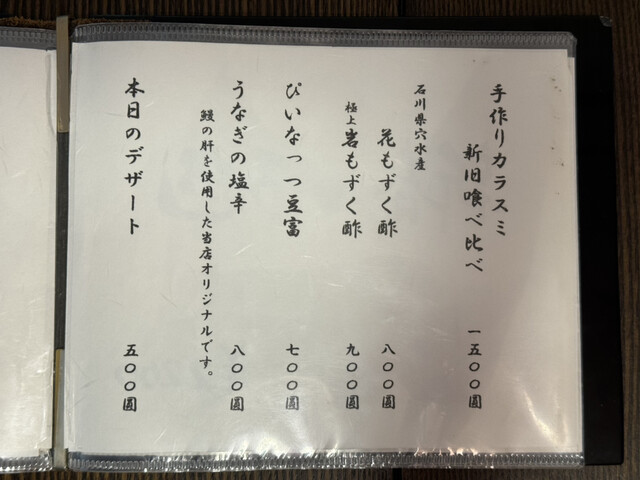 手作りカラスミ
新旧喰べ比べ 一五〇〇圓
石川県穴水産
花もずく酢 八〇〇圓
極上岩もずく酢 九〇〇圓
ぴいなっつ豆富 七〇〇圓
うなぎの塩辛 八〇〇圓
鰻の肝を使用した当店オリジナルです。
本日のデザート 五〇〇圓